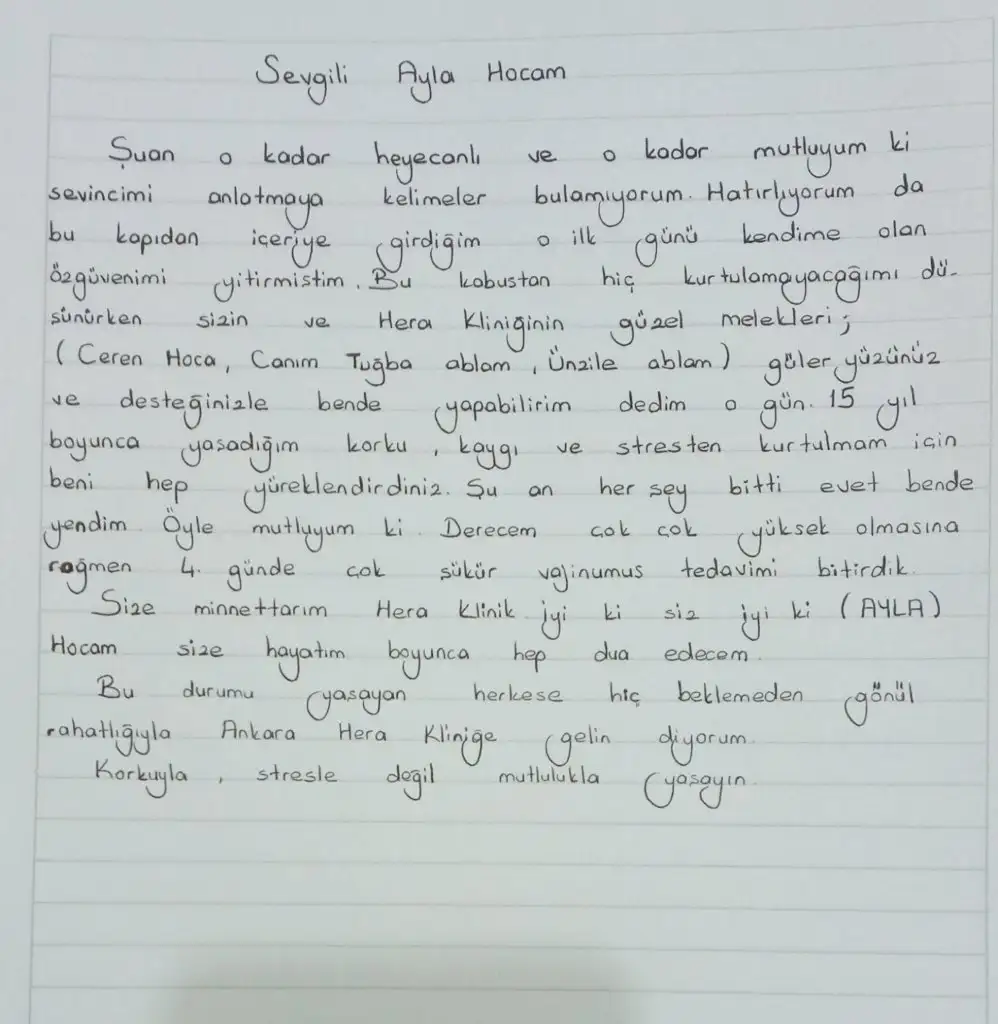 Sevgili Ayla Hocam
Şuan o kadar heyecanlı ve o kadar mutluyum ki
sevincimi anlatmaya kelimeler bulamıyorum. Hatırlıyorum da
bu kapıdan içeriye girdiğim o ilk günü kendime olan
özgüvenimi yitirmistim. Bu kabustan hiç kurtulamayacağımı dü-
sünürken sizin ve Hera Kliniğinin güzel melekleri;
(Ceren Hoca, Canım Tuğba ablam, Ünzile ablam) güler yüzünüz
ve desteğinizle bende yapabilirim dedim o gün. 15 yıl
boyunca yasadığım korku, kaygı ve stresten kurtulmam için
beni hep yüreklendirdiniz. Şu an her sey bitti evet bende
yendim. Öyle mutluyum ki. Derecem cok cok yüksek olmasına
rağmen 4. günde cok sükür vajinumus tedavimi bitirdik.
Size minnettarım Hera Klinik iyi ki siz iyi ki (AYLA)
Hocam size hayatım boyunca hep dua edecem.
Bu durumu yaşayan herkese hiç beklemeden gönül
rahatlığıyla Ankara Hera Kliniğe gelin diyorum.
Korkuyla, stresle değil mutlulukla yaşayın.